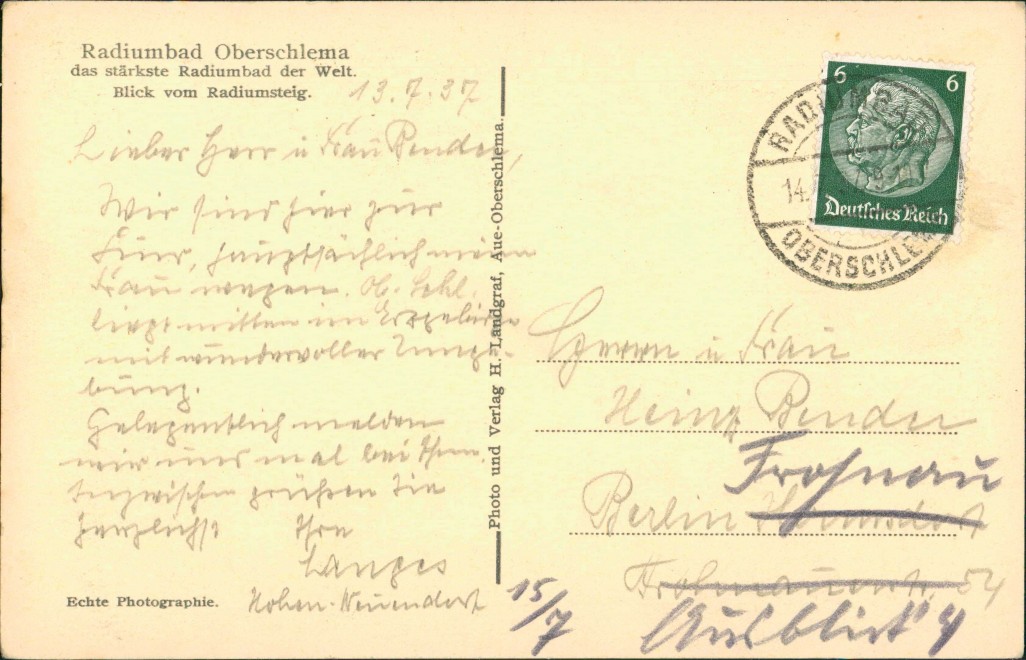 Radiumbad Oberschlema
das stärkste Radiumbad der Welt.
Blick vom Radiumsteig.
13.7.37
Lieber Herr u Frau Bender,
Wir sind hier zur
Kur, hauptsächlich meiner
Frau wegen. Ob. Schl.
liegt mitten im Erzgebirge
mit wundervoller Umge-
bung.
Gelegentlich melden
wir uns mal bei Ihnen.
Inzwischen grüßen Sie
herzlichst Ihre
Langes
Hohen-Neuendorf
Echte Photographie.
Photo und Verlag H. Landgraf, Aue-Oberschlema.
6 6
Deutsches Reich
RADIUMBAD
14.
OBERSCHLEMA
Herrn u Frau
Heinz Bender
Frohnau
Berlin Hermsdorf
Frohnauerstr. 54
15/7
Ausblick 4